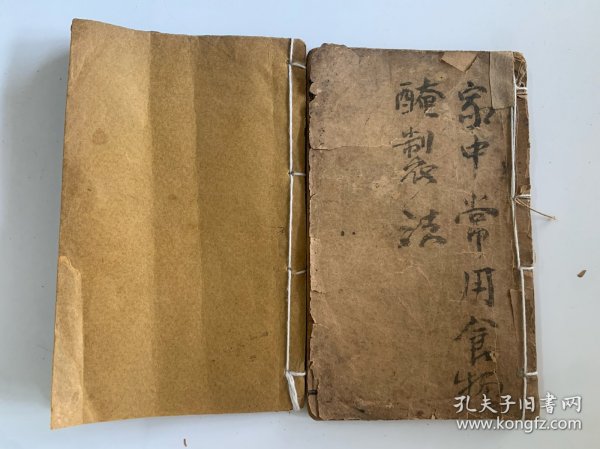 家中常用食物
醃製法
孔夫子旧书网
www.kongfz.com